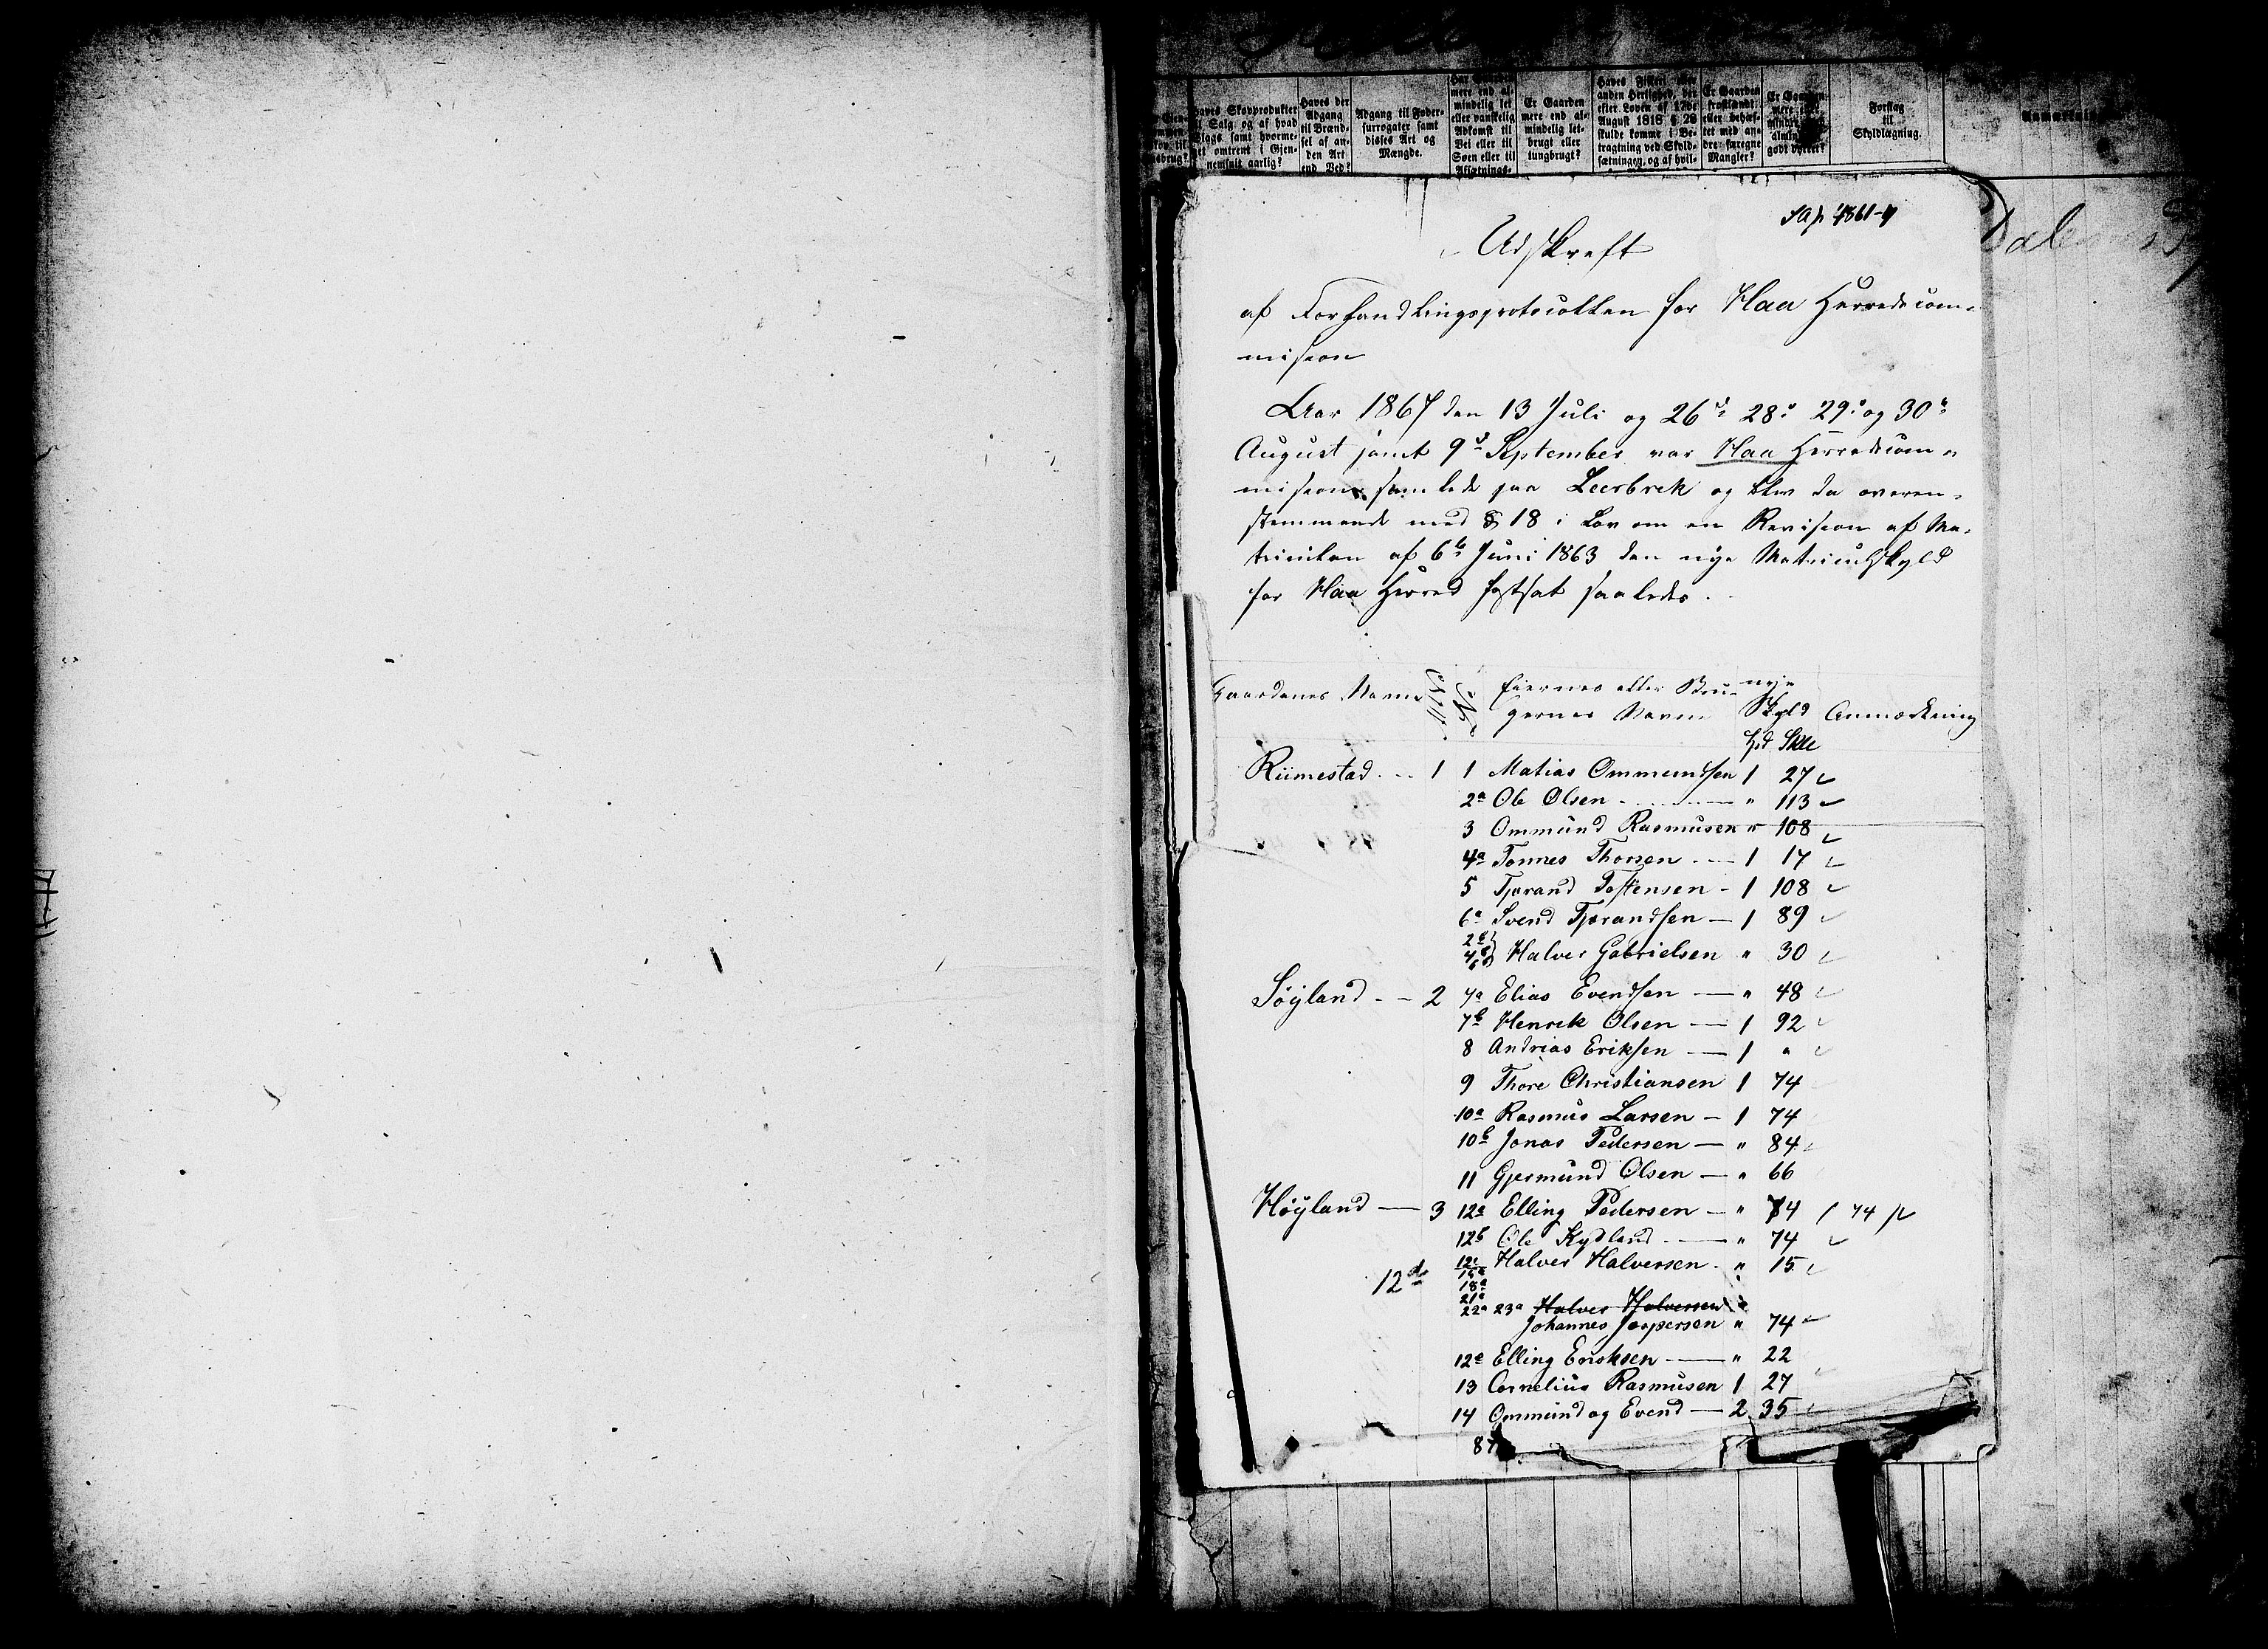 Haves Skovprodukter til Salg og af hvad Slags samt hvormeget omtrent i Gjennemsnit aarlig?
Haves der Adgang til Brændsel af anden Art end Ved?
Adgang til Fodersurrogater samt disses Art og Mængde.
mere end almindelig let eller vanskelig Adkomst til Vei eller til Søen eller til Afsætnings-
Er Gaarden mere end almindelig letbrugt eller tungbrugt?
Haves Fiskeri eller anden Herlighed, der efter Loven af 17de August 1818 § 28 skulde komme i Betragtning ved Skyldsætningen, og af hvil-
Er Gaarden frostlændt eller behæftet med andre særegne Mangler?
Er Gaarden mere eller mindre end almindelig godt dyrket?
Forslag til Skyldlægning.
Udskrift
af Forhandlingsprotocollen for Haa Herredscom-
mission
Aar 1867 den 13 Juli og 26d 28d 29d og 30d
August samt 9d September var Haa Herredscom-
mission samlede paa Leerbrek og blev da overen-
stemmende med § 18 i Lov om en Revision af Ma-
trikulen af 6te Juni 1863 den nye Matriculskyld
for Haa Herred fastsat saaledes.
Gaardenes Navne Eiernes eller Bru- nye
gernes Navne Skyld Anmærkning
Skil
Riimestad. - - 1 1 Matias Ommundsen 1 27
2a Ole Olsen " 113
3 Ommund Rasmusen " 108
4a Tønnes Thorsen - 1 17
5 Tjørand Tostensen - 1 108
6a Svend Tjørandsen - 1 89
2b 4b 6b Halver Gabrielsen " 30
Søyland - - 2 7a Elias Evendsen - " 48
7b Henrek Olsen - 1 92
8 Andrias Eriksen - 1 "
9 Thore Christiansen 1 74
10a Rasmus Larsen - 1 74
10b Jonas Pedersen - " 84
11 Gjermund Olsen - " 66
Høyland - 3 12a Elling Pedersen - " 74 ( 74 )
12b Ole Kydland - " 74
12c Halver Halversen. " 15
12d 15a 18a 21a
22a 23a Halver Halversen
Johannes Jaspersen " 74
12e Elling Eriksen - " 22
13 Cornelius Rasmusen 1 27
14 Ommund og Evend - 2 35